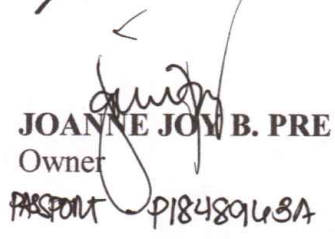 JOANNE JOY B. PRE
Owner
PASSPORT P1848963A